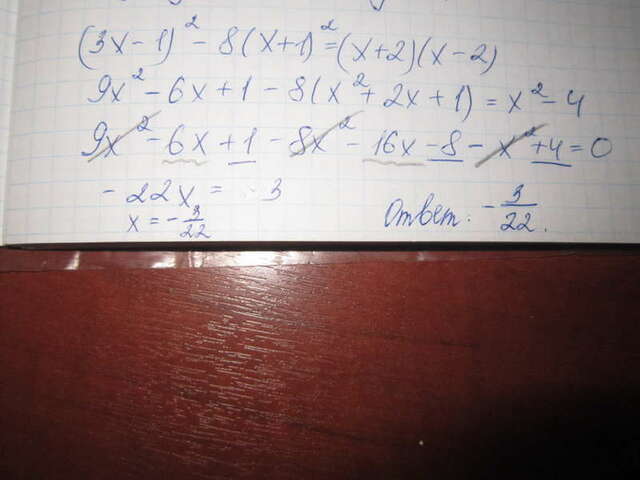 (3x-1)² - 8(x+1)² = (x+2)(x-2)
9x² - 6x + 1 - 8(x² + 2x + 1) = x² - 4
9x² - 6x + 1 - 8x² - 16x - 8 - x² + 4 = 0
- 22x = 3
x = - 3/22
Ответ: - 3/22.